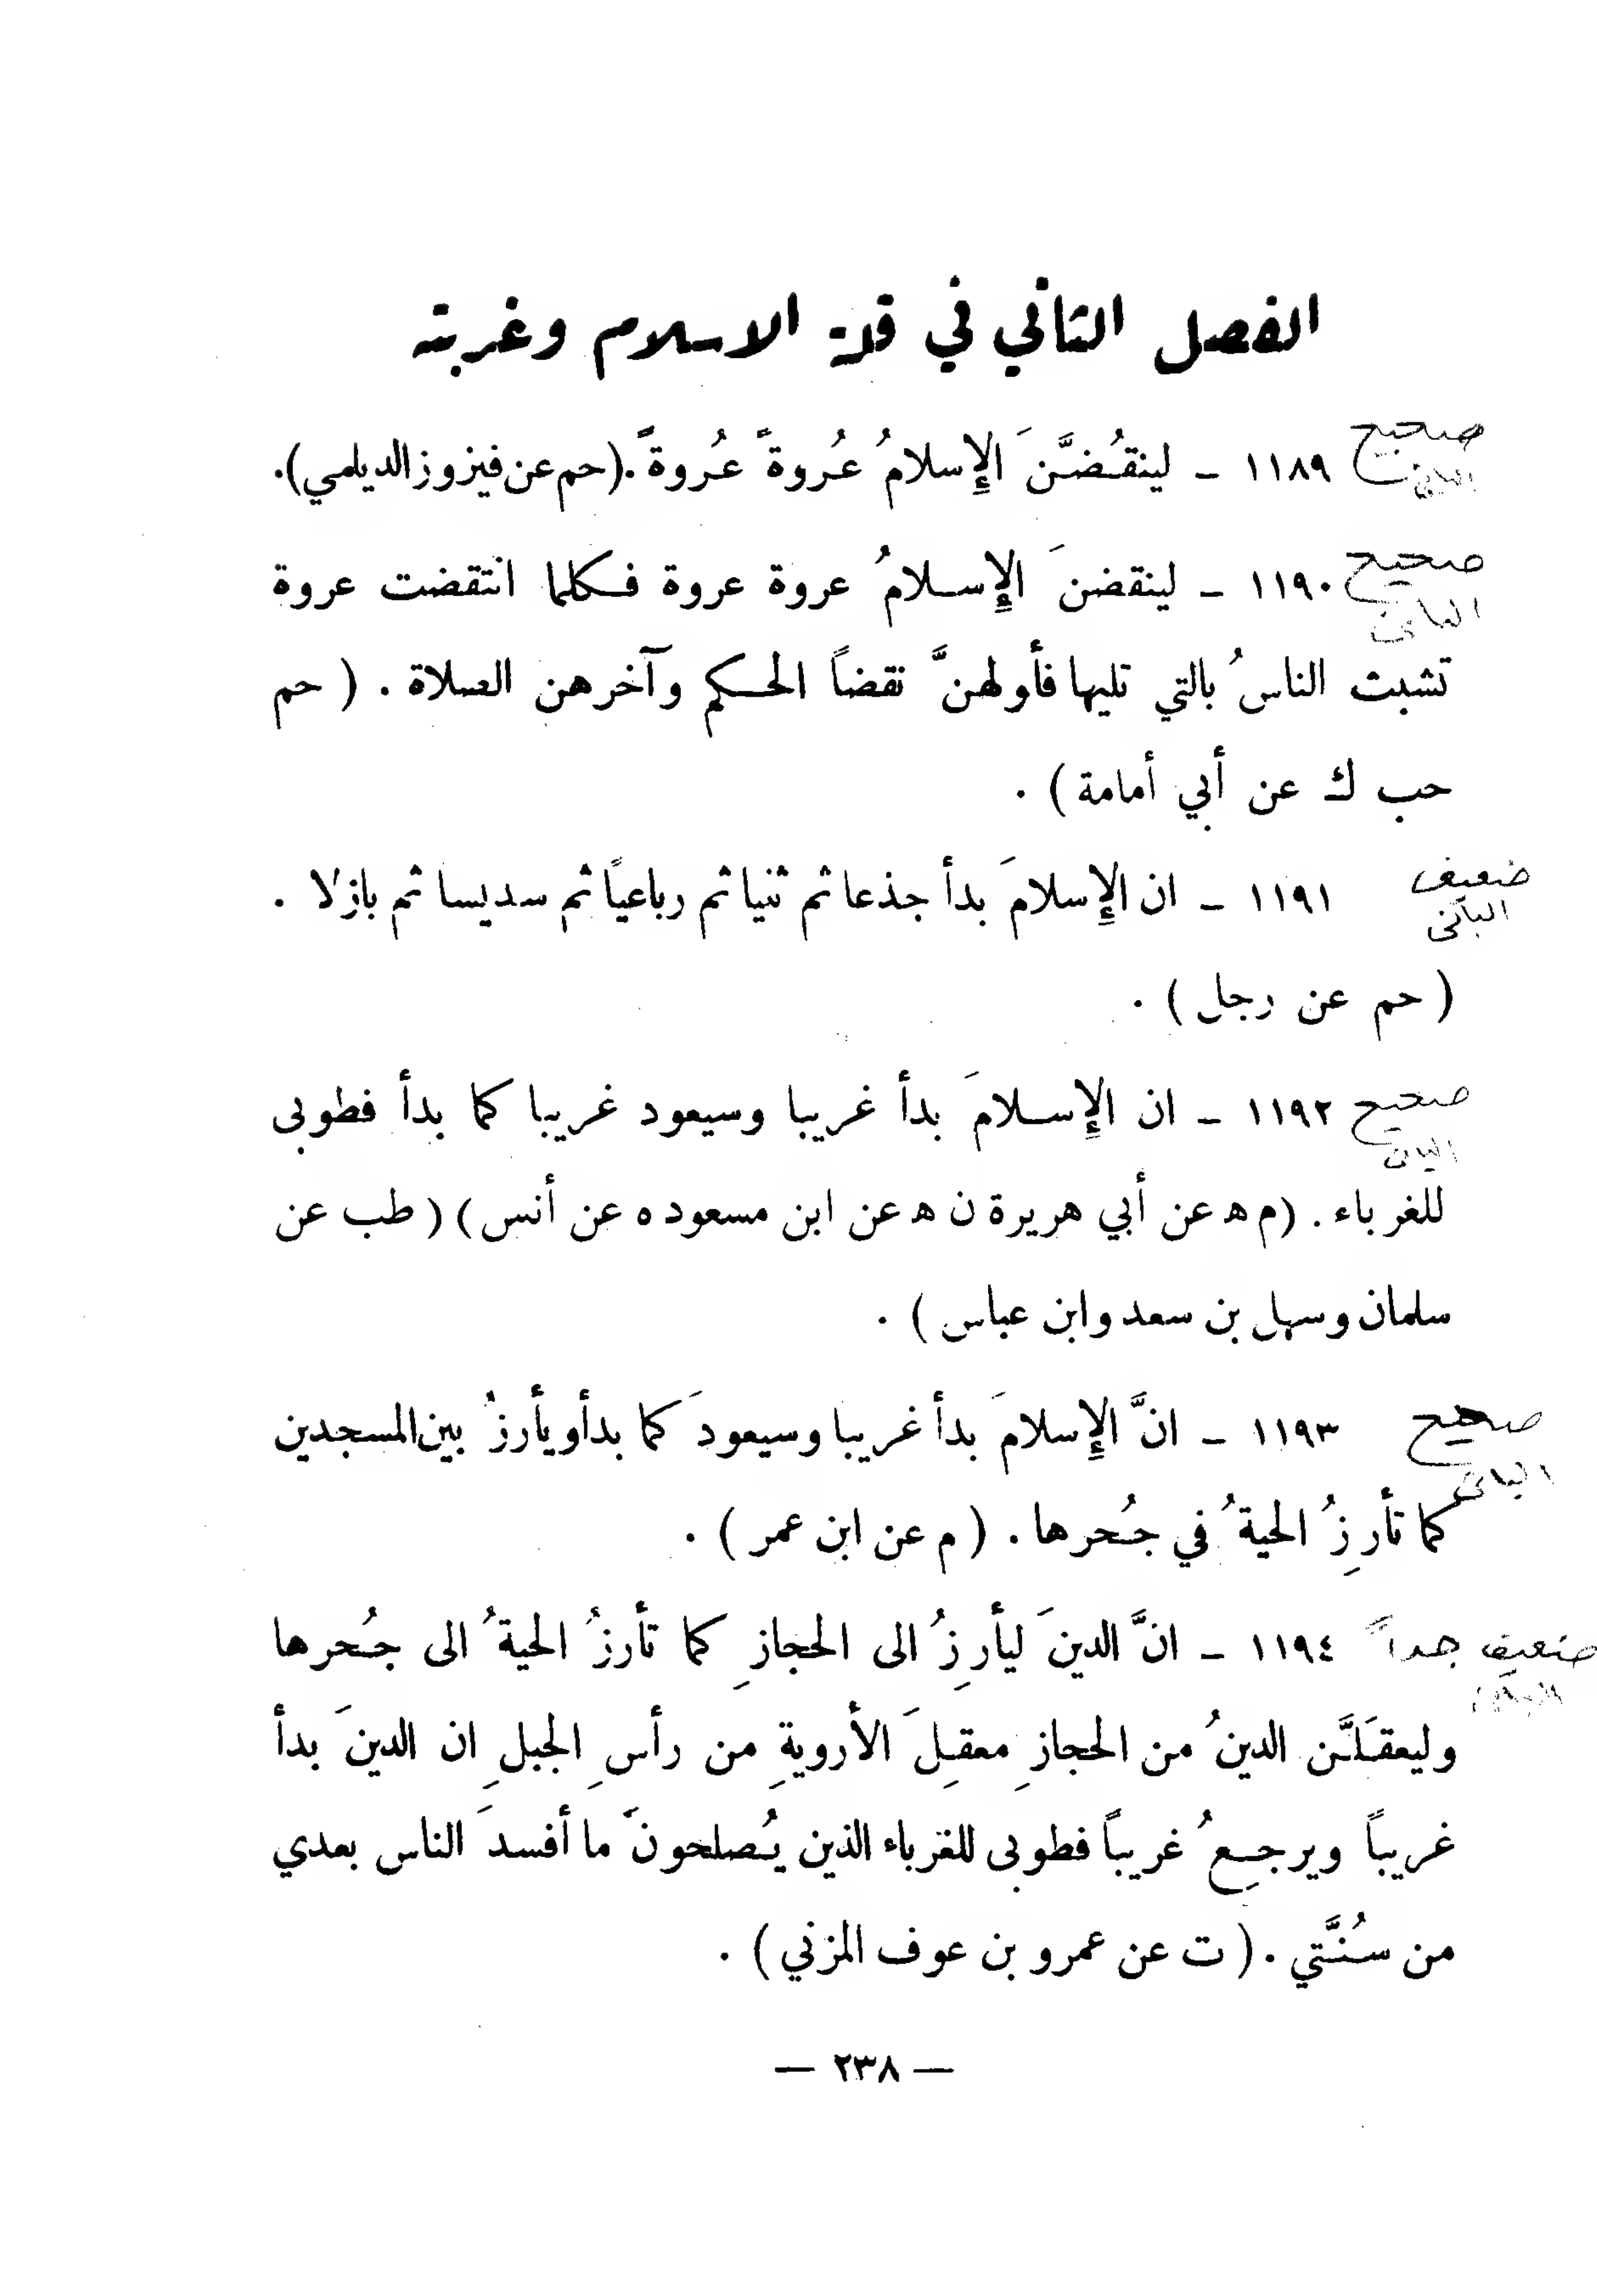 الفصل الثاني في قلة الاسلام وغربته
صحيح ١١٨٩ - لينقُضَّنَ الإِسلامُ عُروةً عُروةً.(حم عن فيزوز الديلمي).
صحيح ١١٩٠ - لينقضنَ الإِسلامُ عروة عروة فكلما انتقضت عروة
الباني
تشبث الناسُ بالتي تليها فأولهنَّ نقضاً الحكم وآخرهن الصلاة . ( حم
حب ك عن أبي أمامة ) .
ضعيف ١١٩١ - ان الإِسلامَ بدأ جذعا ثم ثنيا ثم رباعيًا ثم سديسا ثم بازلا .
البانى
( حم عن رجل ) .
صحيح ١١٩٢ - ان الإِسلامَ بدأ غريبا وسيعود غريبا كما بدأ فطوبى
للغرباء . (م ه عن أبي هريرة ن ه عن ابن مسعود ه عن أنس) ( طب عن
سلمان وسهل بن سعد وابن عباس ) .
صحيح ١١٩٣ - انَّ الإِسلامَ بدأ غريبا وسيعودَ كما بدأ ويأرزُ بين المسجدين
البانى
كما تأرِزُ الحيةُ في جُحرها . ( م عن ابن عمر ) .
ضعيف جداً ١١٩٤ - انَّ الدينَ ليأرِزُ الى الحجازِ كما تأرزُ الحيةُ الى جُحرها
وليعقَلَنَّ الدينُ من الحجازِ معقِلَ الأرويةِ من رأسِ الجبلِ ان الدينَ بدأ
غريباً ويرجِعُ غريباً فطوبى للغرباء الذين يُصلحونَ ما أفسدَ الناس بعدي
من سُنَّتي . ( ت عن عمرو بن عوف المزني ) .
— ٢٣٨ —